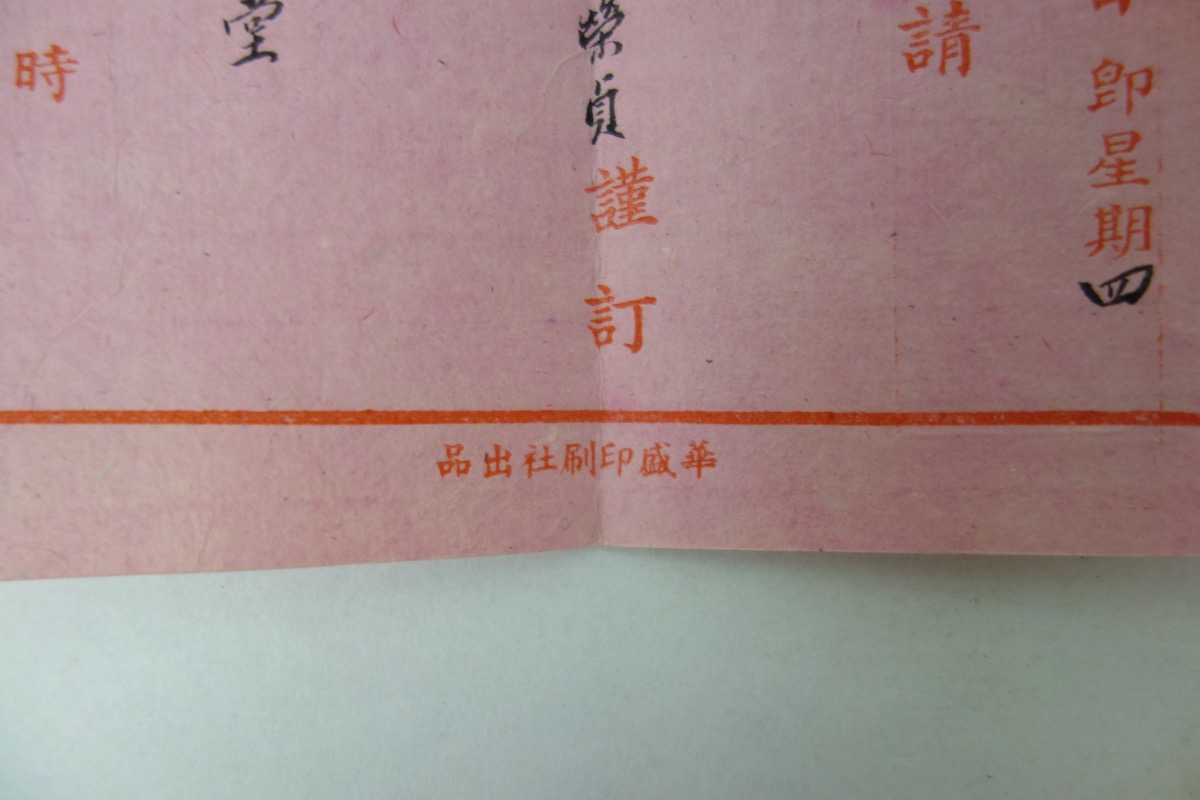 卽星期四
請
榮貞謹訂
堂
時
華盛印刷社出品